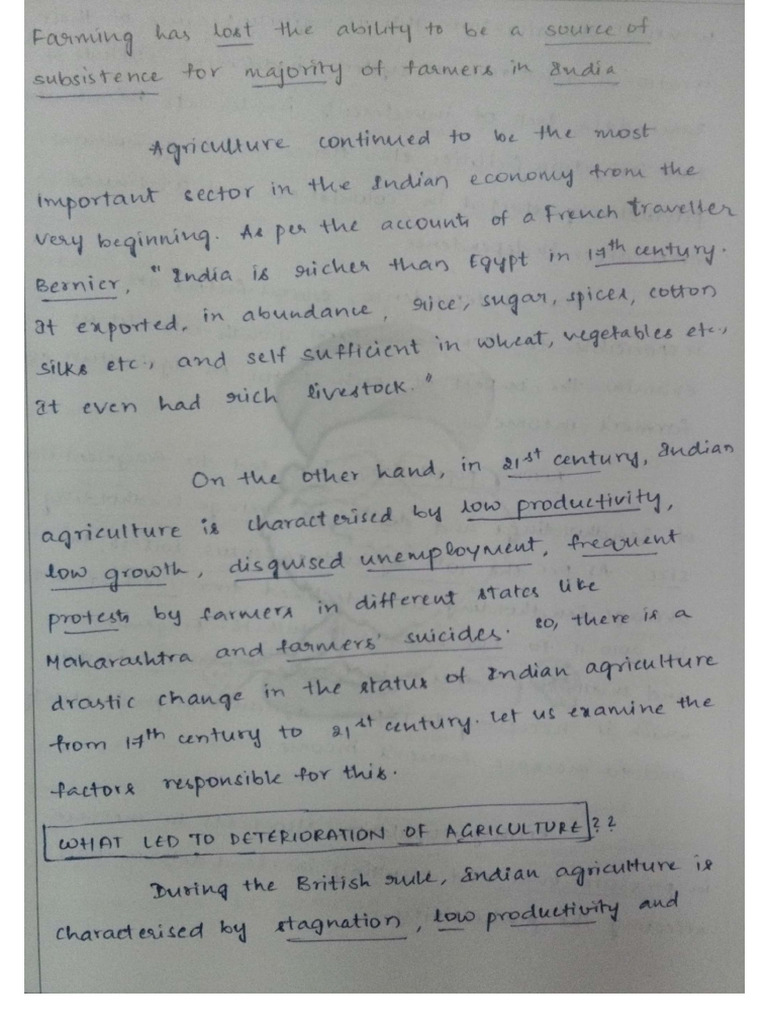 Farming has lost the ability to be a source of
subsistence for majority of farmers in India
Agriculture continued to be the most
important sector in the Indian economy from the
very beginning. As per the accounts of a French traveller
Bernier, "India is richer than Egypt in 17th century.
It exported, in abundance, rice, sugar, spices, cotton
silks etc., and self sufficient in wheat, vegetables etc.,
It even had rich livestock."
On the other hand, in 21st century, Indian
agriculture is characterised by low productivity,
low growth, disguised unemployment, frequent
protests by farmers in different states like
Maharashtra and farmers' suicides. So, there is a
drastic change in the status of Indian agriculture
from 17th century to 21st century. Let us examine the
factors responsible for this.
WHAT LED TO DETERIORATION OF AGRICULTURE??
During the British rule, Indian agriculture is
characterised by stagnation, low productivity and